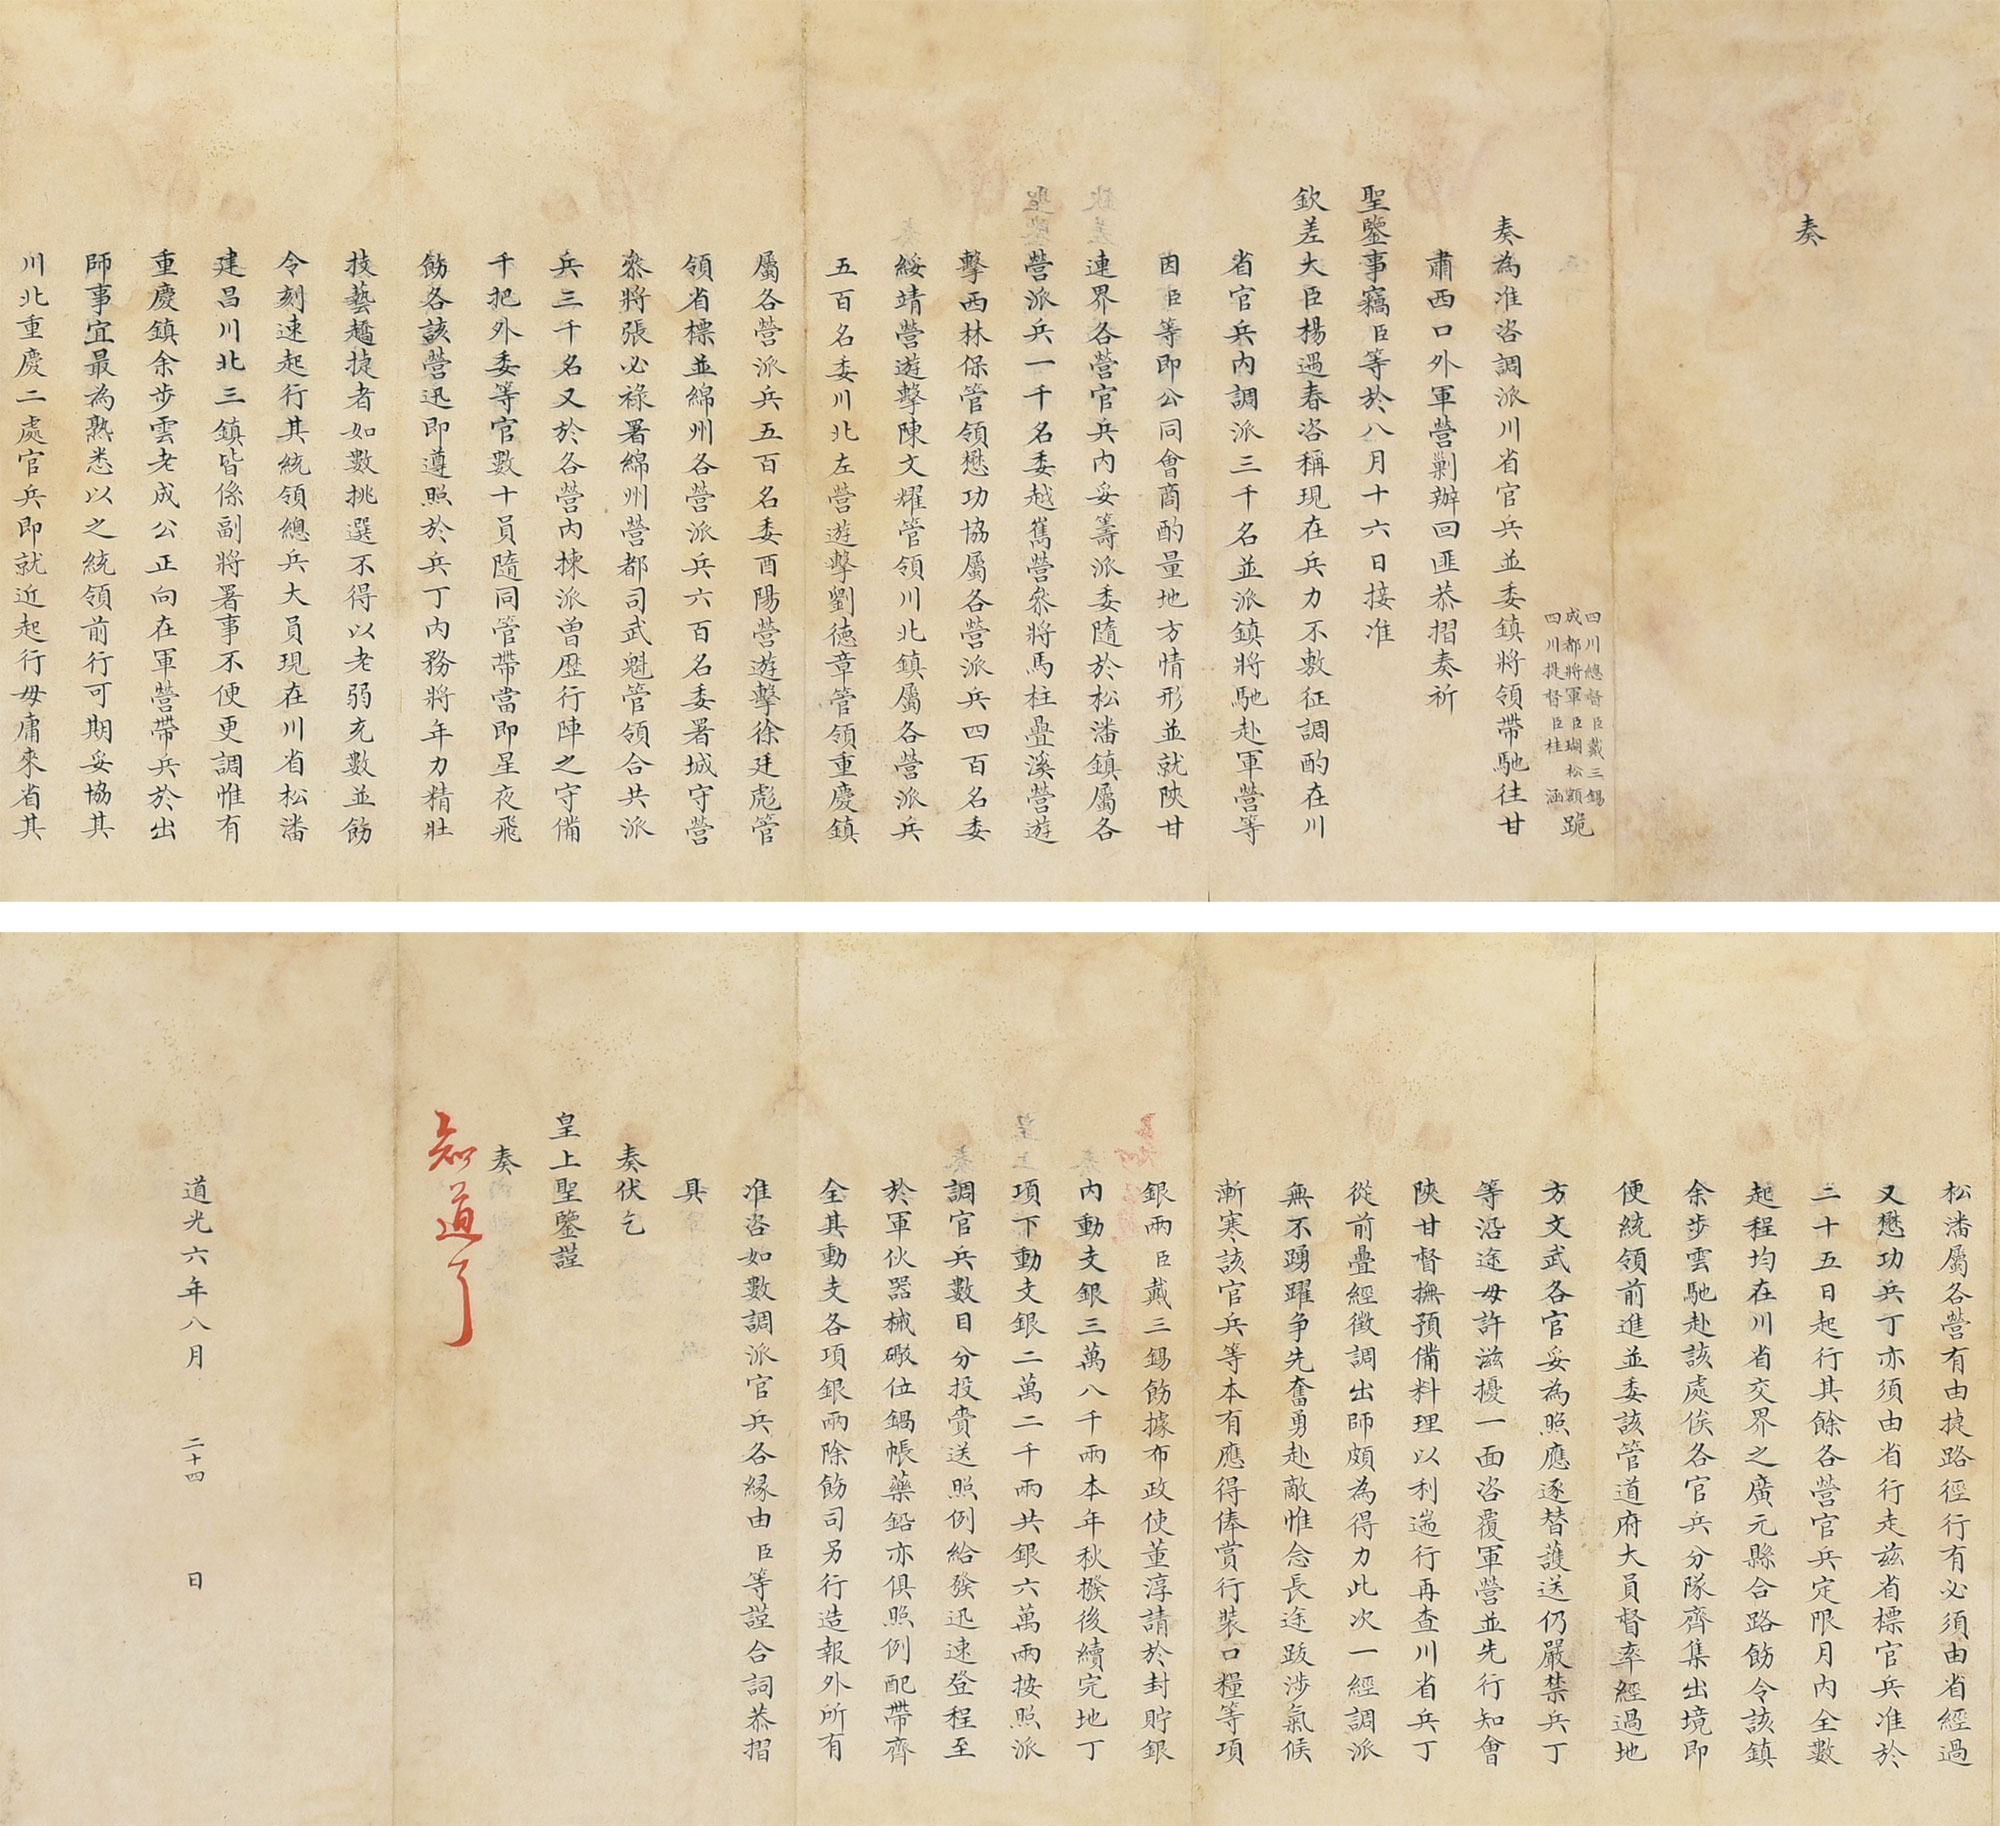 奏
四川總督臣戴三錫
成都將軍臣瑚松額跪
四川提督臣桂 涵
奏為准咨調派川省官兵並委鎮將領帶馳往甘
肅西口外軍營剿辦回匪恭摺奏祈
聖鑒事竊臣等於八月十六日接准
欽差大臣楊遇春咨稱現在兵力不敷征調酌在川
省官兵內調派三千名並派鎮將馳赴軍營等
因臣等即公同會商酌量地方情形並就陝甘
連界各營官兵內妥籌派委隨於松潘鎮屬各
營派兵一千名委越嶲營叅將馬柱疊溪營遊
擊西林保管領懋功協屬各營派兵四百名委
綏靖營遊擊陳文耀管領川北鎮屬各營派兵
五百名委川北左營遊擊劉德章管領重慶鎮
屬各營派兵五百名委酉陽營遊擊徐廷彪管
領省標並綿州各營派兵六百名委署城守營
叅將張必祿署綿州營都司武魁管領合共派
兵三千名又於各營內揀派曾歷行陣之守備
千把外委等官數十員隨同管帶當即星夜飛
飭各該營迅即遵照於兵丁內務將年力精壯
技藝趫捷者如數挑選不得以老弱充數並飭
令刻速起行其統領總兵大員現在川省松潘
建昌川北三鎮皆係副將署事不便更調惟有
重慶鎮余步雲老成公正向在軍營帶兵於出
師事宜最為熟悉以之統領前行可期妥協其
川北重慶二處官兵即就近起行毋庸來省其
松潘屬各營有由捷路徑行有必須由省經過
又懋功兵丁亦須由省行走茲省標官兵准於
二十五日起行其餘各營官兵定限月內全數
起程均在川省交界之廣元縣合路飭令該鎮
余步雲馳赴該處俟各官兵分隊齊集出境即
便統領前進並委該管道府大員督率經過地
方文武各官妥為照應逐替護送仍嚴禁兵丁
等沿途毋許滋擾一面咨覆軍營並先行知會
陝甘督撫預備料理以利遄行再查川省兵丁
從前疊經徵調出師頗為得力此次一經調派
無不踴躍争先奮勇赴敵惟念長途跋涉氣候
漸寒該官兵等本有應得俸賞行裝口糧等項
銀兩臣戴三錫飭據布政使董淳請於封貯銀
內動支銀三萬八千兩本年秋撥後續完地丁
項下動支銀二萬二千兩共銀六萬兩按照派
調官兵數目分投賫送照例給發迅速登程至
於軍伙器械礮位鍋帳藥鉛亦俱照例配帶齊
全其動支各項銀兩除飭司另行造報外所有
准咨如數調派官兵各緣由臣等謹合詞恭摺
具
奏伏乞
皇上聖鑒謹
奏
知道了
道光六年八月 二十四 日